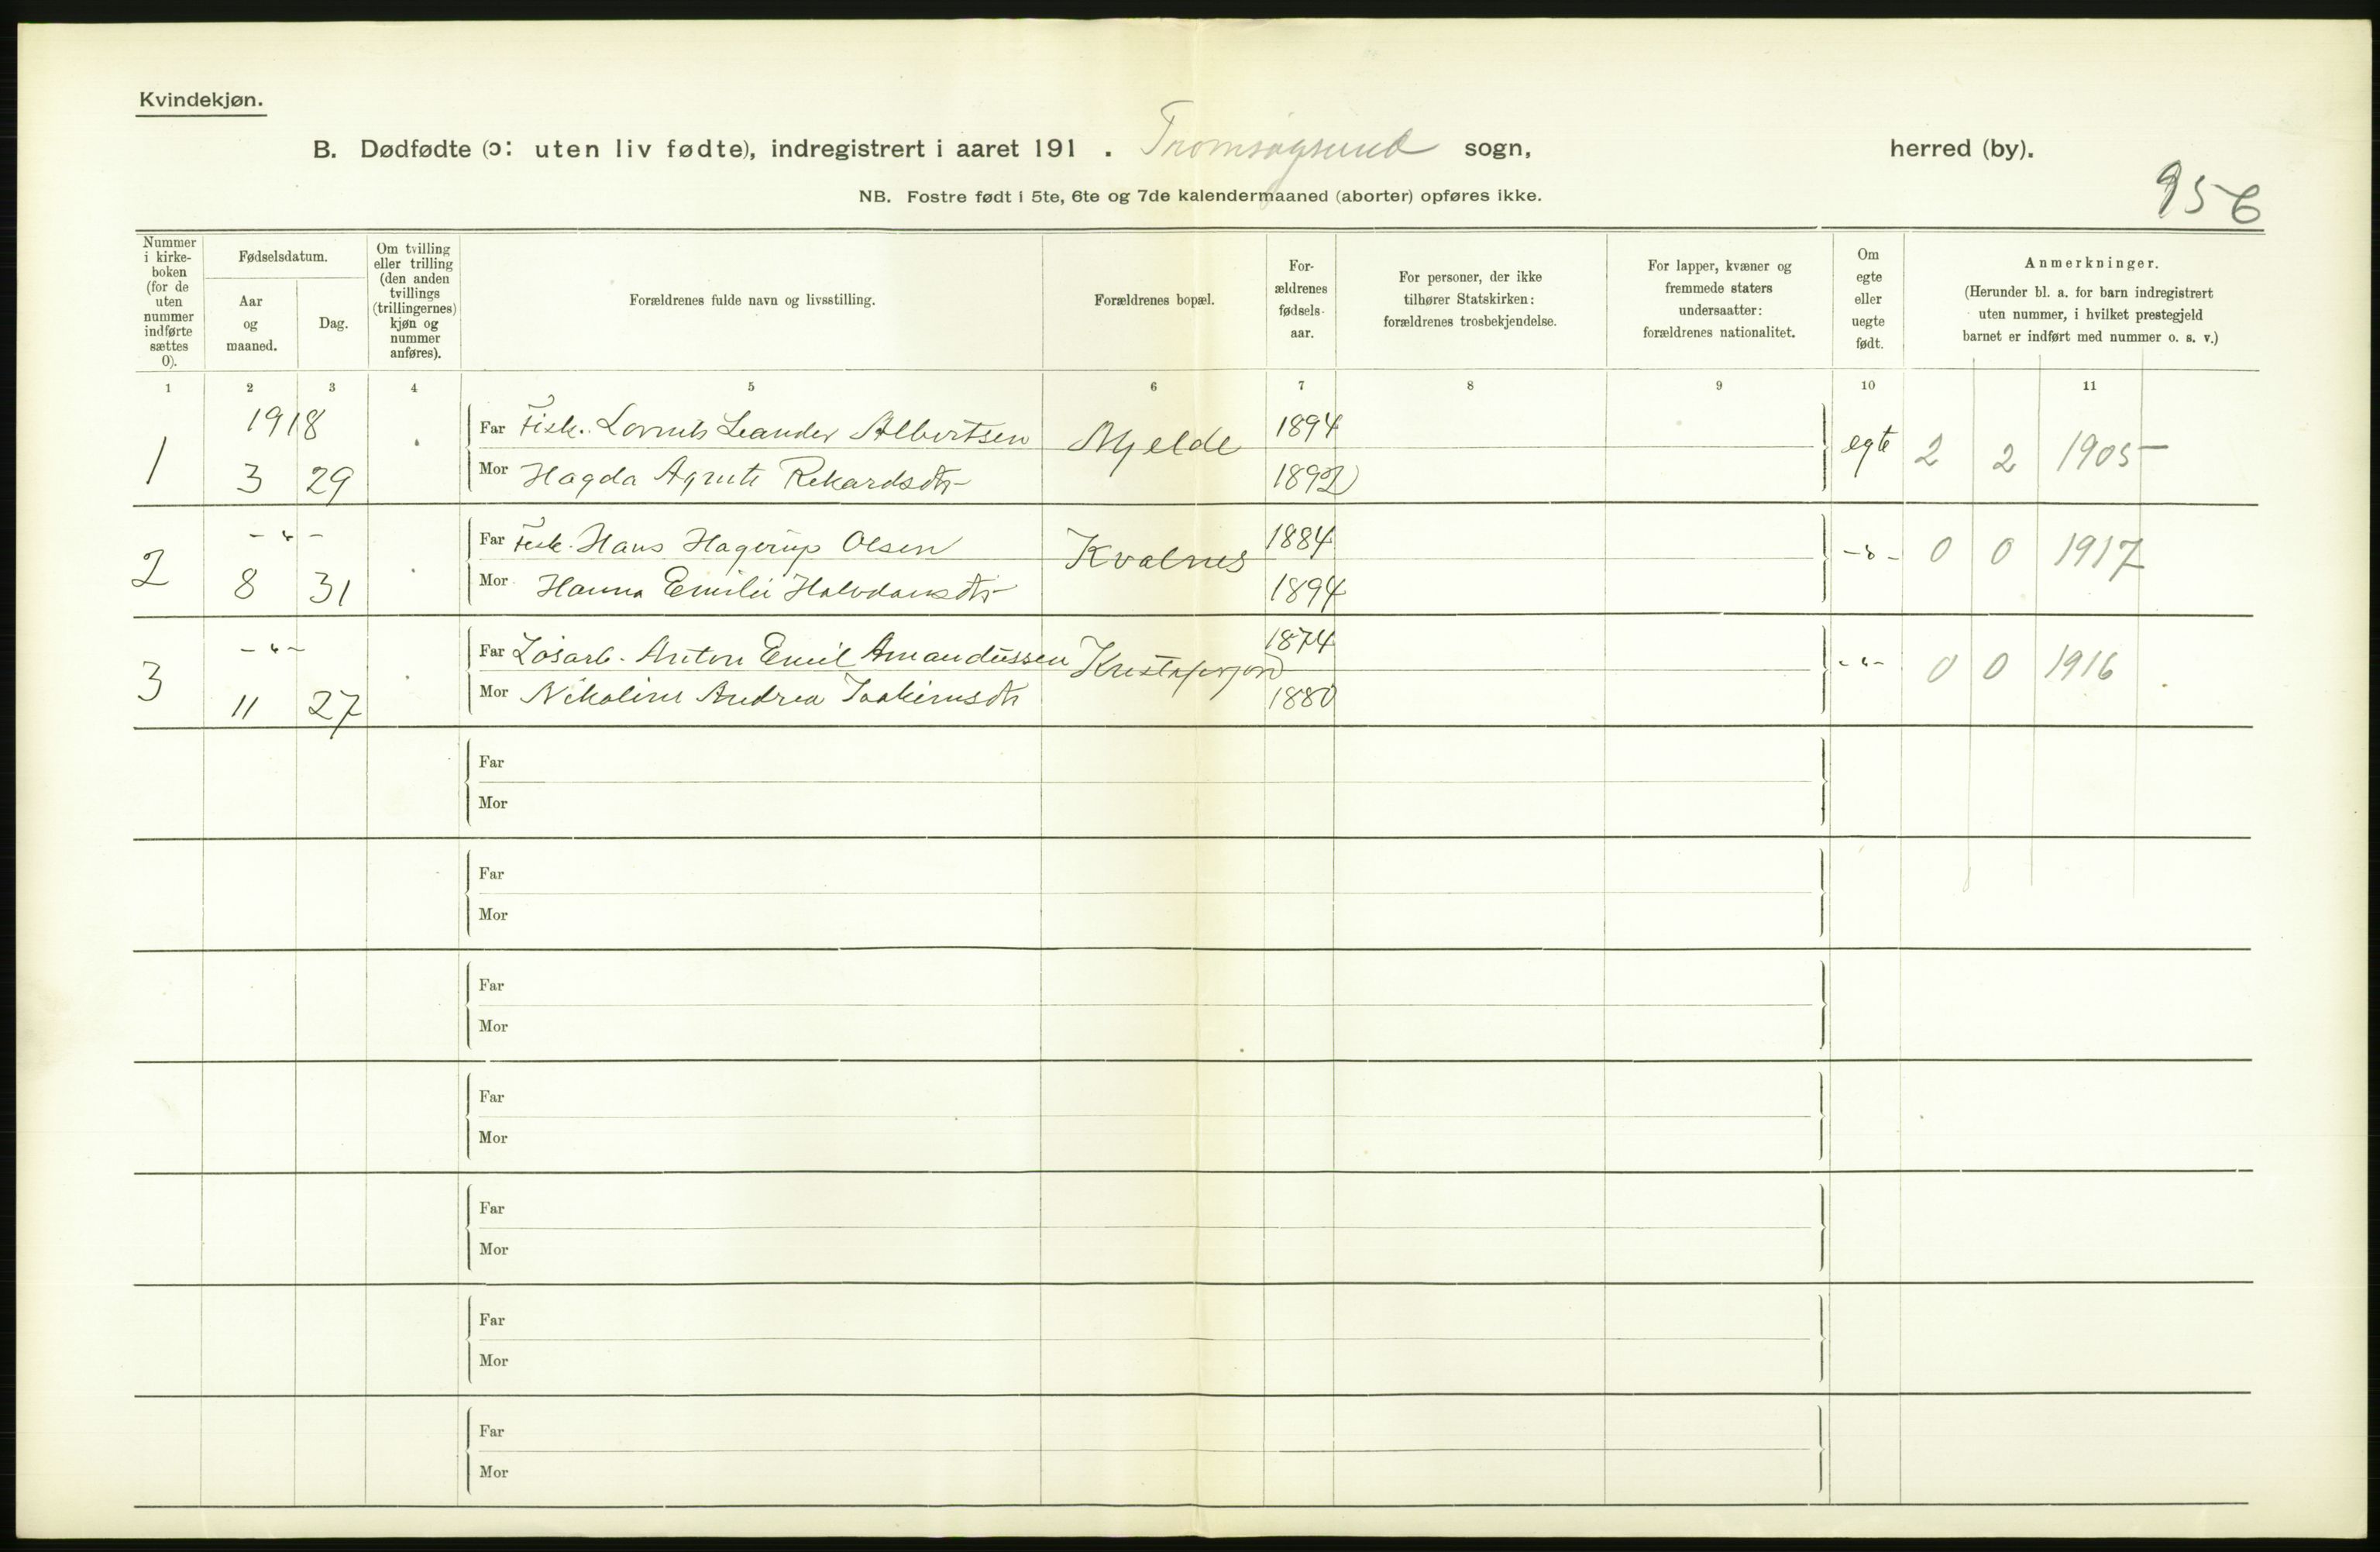 Kvindekjøn.
B. Dødfødte (ɔ: uten liv fødte), indregistrert i aaret 191 . Tromsøysund sogn, herred (by).
956
NB. Fostre født i 5te, 6te og 7de kalendermaaned (aborter) opføres ikke.
Nummer i kirke-boken (for de uten nummer indførte sættes 0).
Fødselsdatum.
Aar og maaned.
Dag.
Om tvilling eller trilling (den anden tvillings (trillingernes) kjøn og nummer anføres).
Forældrenes fulde navn og livsstilling.
Forældrenes bopæl.
For-ældrenes fødsels-aar.
For personer, der ikke tilhører Statskirken: forældrenes trosbekjendelse.
For lapper, kvæner og fremmede staters undersaatter: forældrenes nationalitet.
Om egte eller uegte født.
Anmerkninger.
(Herunder bl. a. for barn indregistrert uten nummer, i hvilket prestegjeld barnet er indført med nummer o. s. v.)
1 2 3 4 5 6 7 8 9 10 11
1918
1 3 29
Far Fisk. Leander Albertsen Mjelde 1894 egte 2 2 1905
Mor Hagda Rikardsdtr 1892
- " -
2 8 31
Far Fisk. Hans Hagerup Olsen Kvalnes 1884 - " - 0 0 1917
Mor Hanna Emilie Halvdansdtr 1894
- " -
3 11 27
Far Løsarb. Anton Emil Amandussen 1874 - " - 0 0 1916
Mor Nikoline Andrea Joakimsdtr 1880
Far
Mor
Far
Mor
Far
Mor
Far
Mor
Far
Mor
Far
Mor
Far
Mor